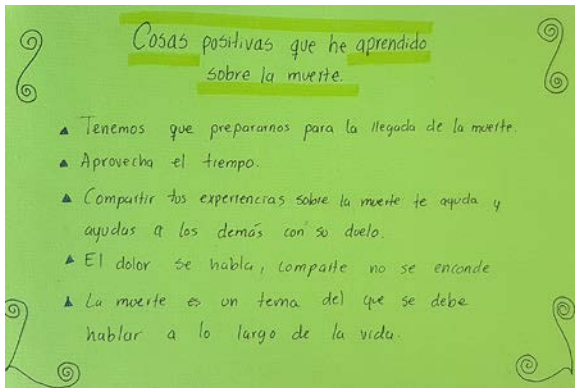 Cosas positivas que he aprendido
sobre la muerte.
Tenemos que prepararnos para la llegada de la muerte.
Aprovecha el tiempo.
Compartir tus experiencias sobre la muerte te ayuda y
ayudas a los demás con su duelo.
El dolor se habla, comparte no se enconde
La muerte es un tema del que se debe
hablar a lo largo de la vida.